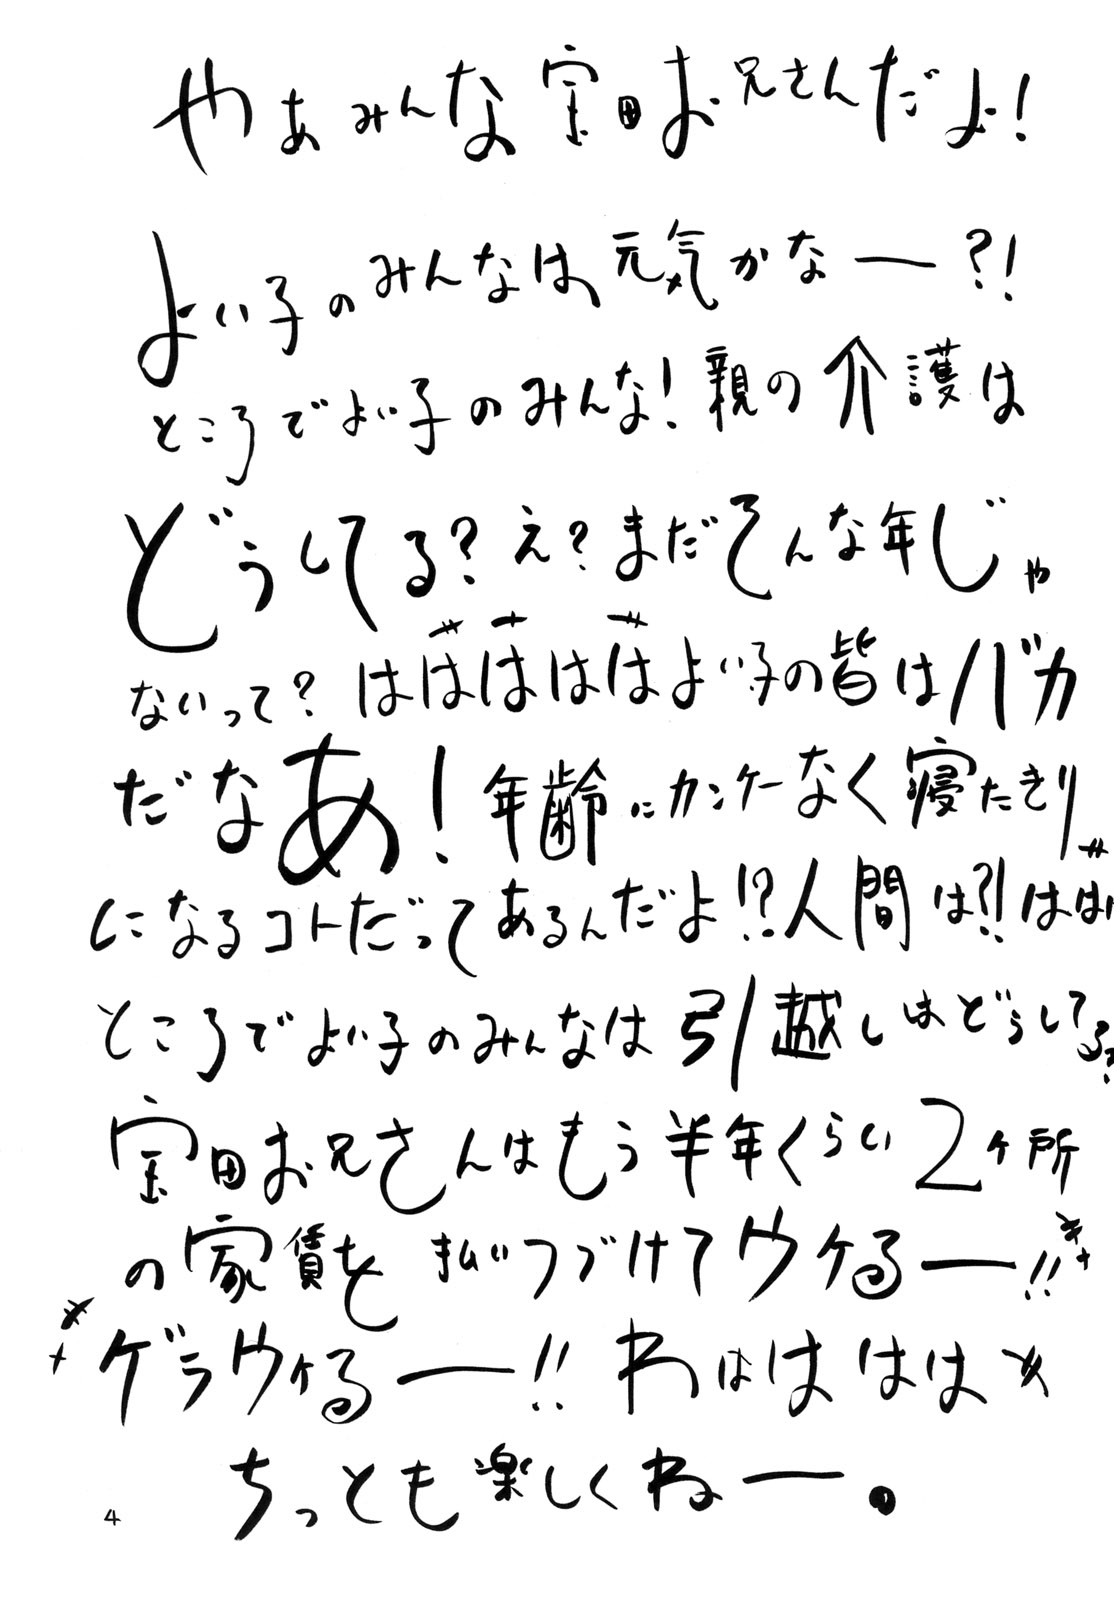 やぁみんな宝田お兄さんだよ!
よい子のみんなは元気かなー?!
ところでよい子のみんな!親の介護は
どうしてる?え?まだそんな年じゃ
ないって?はははははよい子の皆はバカ
だなあ!年齢にカンケーなく寝たきり
になるコトだってあるんだよ!?人間は?!はは
ところでよい子のみんなは引越しはどうしてる?
宝田お兄さんはもう半年くらい2ヶ所
の家賃を払いつづけてウケるー!!
ゲラウケるー!!わはははは
ちっとも楽しくねー。
4